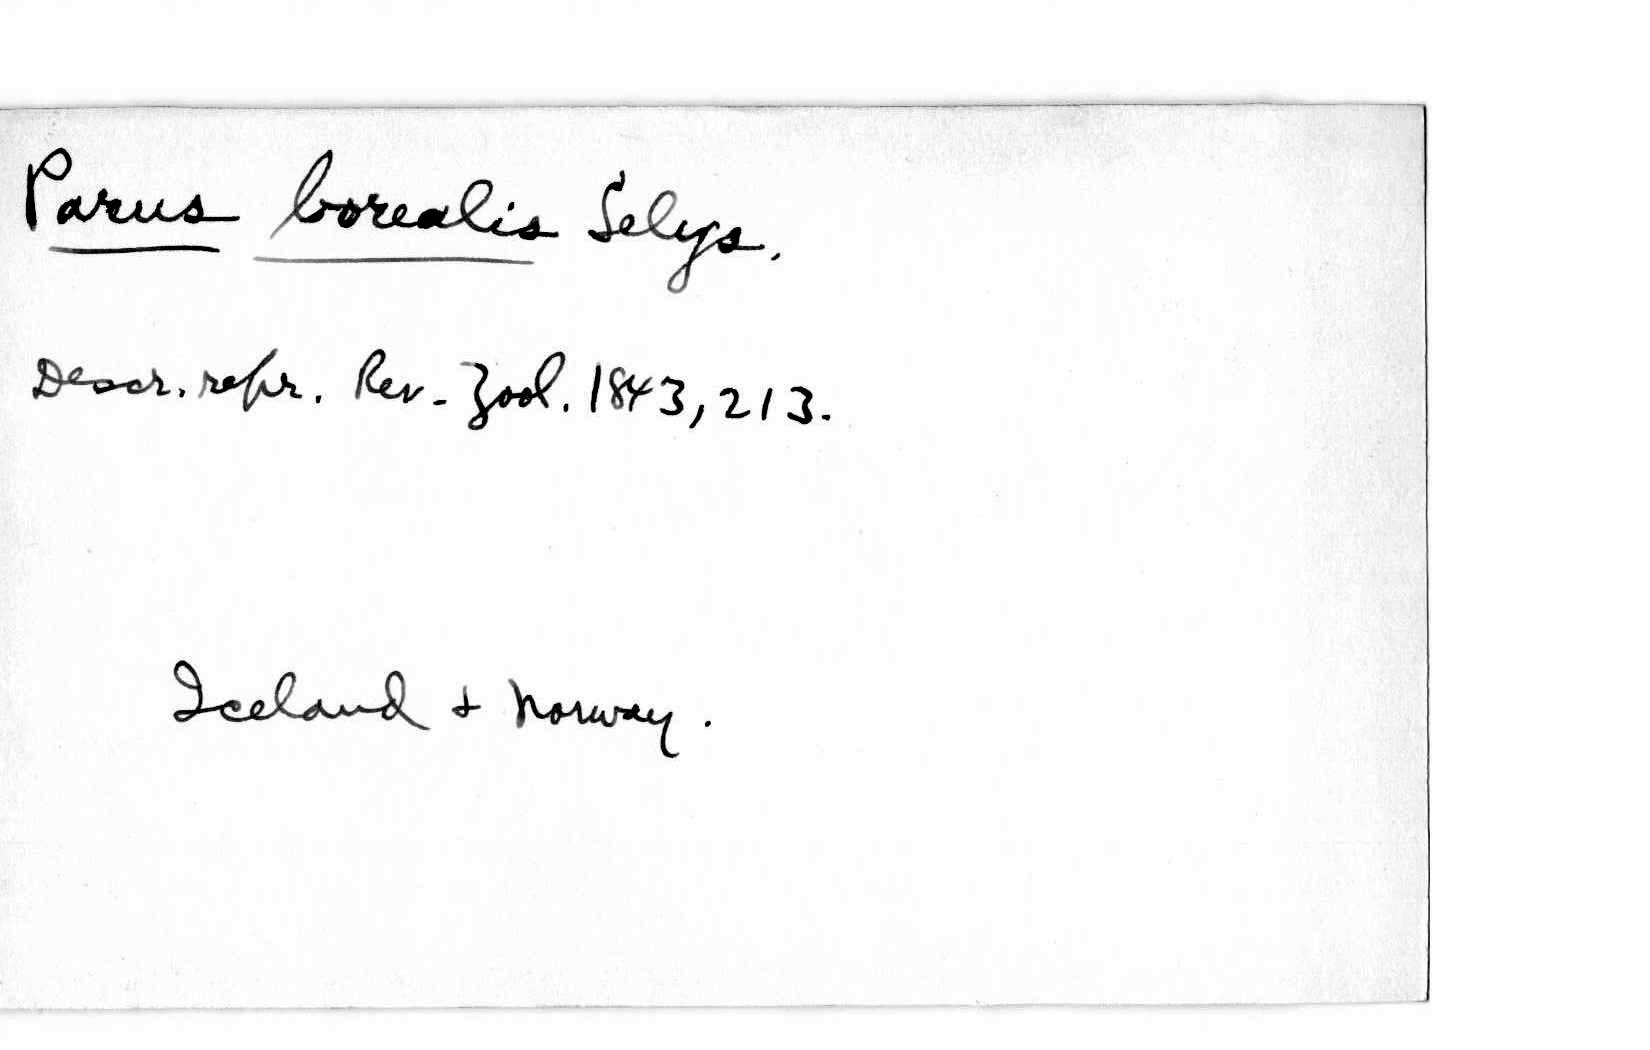 Parus borealis Selys.
Descr. repr. Rev. Zool. 1843, 213.
Iceland & Norway.